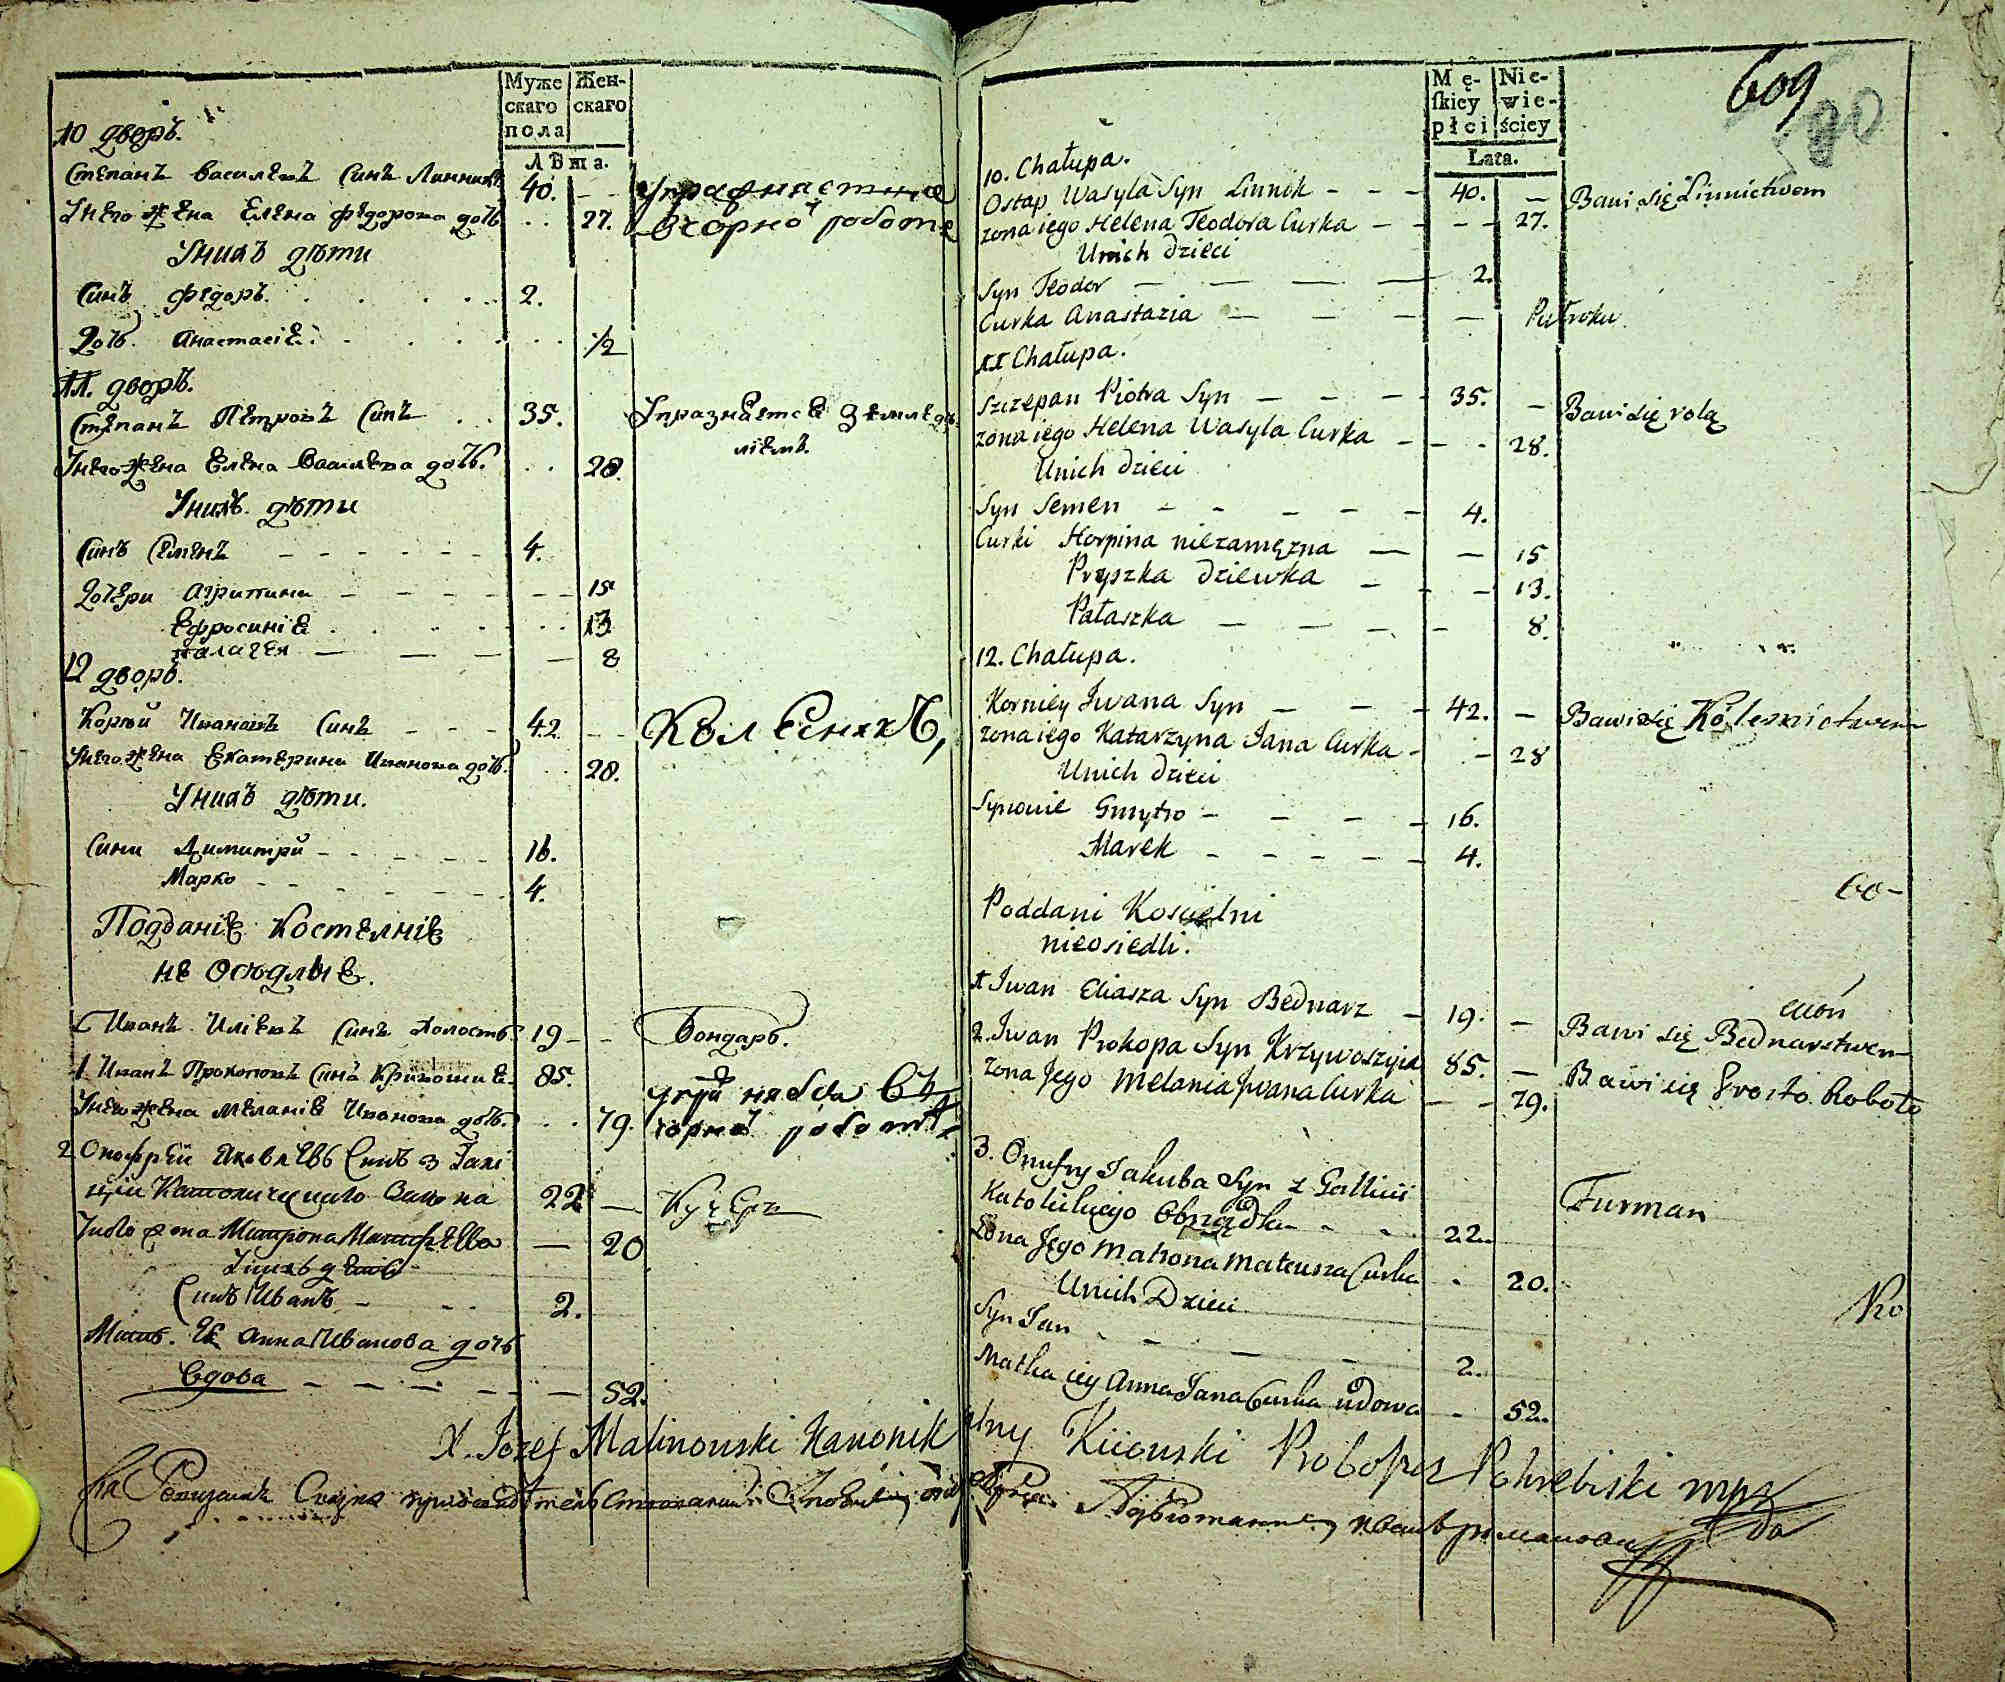 Муже
скаго
пола
Жен-
скаго
Лѣта.
10 дворъ.
Степанъ Василевъ Синъ Линникъ 40.
Унего жена Елена Федорова дочь 27.
Упражняется
В чорно роботе
Унихъ дѣти
Синъ Федоръ. 2.
Дочь Анастасіѣ 1/2
11. дворъ.
Степанъ Петровъ Синъ 35.
Упразняется Землед
ліемъ.
Унего жена Елена Василева дочь. 28.
Унихъ дѣти
Синъ Семенъ 4.
Дочери Агрипина 15
Ефросиніе 13
Палагея 8
12 дворъ.
Корній Ивановъ Синъ 42
Колесникъ,
Унего жена Екатерина Иванова дочь. 28.
Унихъ дѣти.
Сини Димитрій 16.
Марко 4.
Подданіе Костелніе
не Осѣдлые.
Иванъ Иліевъ Синъ Холостъ 19
Бондаръ.
1 Иванъ Прокоповъ Синъ Кривошие 85.
Унего жена Меланіе Иванова дочь. 79.
чорной роботѣ
2 Онофрей Яковлевъ Синъ з Гали
ціи Католическаго 22
Кучеръ
Унего жена Матрона Матфѣева 20
Унихъ дети
Синъ Иванъ 2.
Мать Ее Анна Иванова дочь
вдова 52.
Mę-
ſkiey
płci
Nie-
wie-
ściey
Lata.
609
80
10. Chałupa.
Ostap Wasyla Syn Linnik 40.
Bawi się Linnictwem
żona iego Helena Teodora Curka 27.
Unich dzieci
Syn Teodor 2.
Curka Anastazia Pułroku.
11 Chałupa.
Szczepan Piotra Syn 35.
Bawi się rolą
żona iego Helena Wasyla Curka 28.
Unich dzieci
Syn Semen 4.
Curki Horpina niezamężna 15
Pryszka dziewka 13.
Pałaszka 8.
12. Chałupa.
Korniey Iwana Syn 42.
Bawi się Kolesnictwem
żona iego Katarzyna Jana Curka 28
Unich dzieci
Synowie Gmytro 16.
Marek 4.
Poddani Kościelni
nieosiedli.
1 Iwan Eliasza Syn Bednarz 19.
Bawi się Bednarstwem
2. Iwan Prokopa Syn Krzywoszyia 85.
Bawi się Prosto Roboto
żona Jego Melania Jwana Curka 79.
3. Onufry Jakuba Syn z Gallicii
Katolickiego Obrządku 22.
Furman
żona Jego Matrona Mateusza Curka 20.
Unich Dzieci
Syn Jan 2.
Matka iey Anna Jana Curka wdowa 52.
X. Jozef Malinowski Kanonik
Kiiowski Proboszcz Pohrebiski mpr